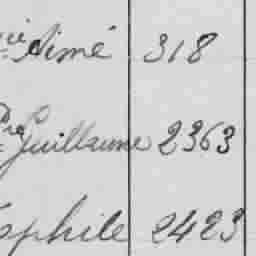 Aimé 318
Guillaume 2363
aphile 2423